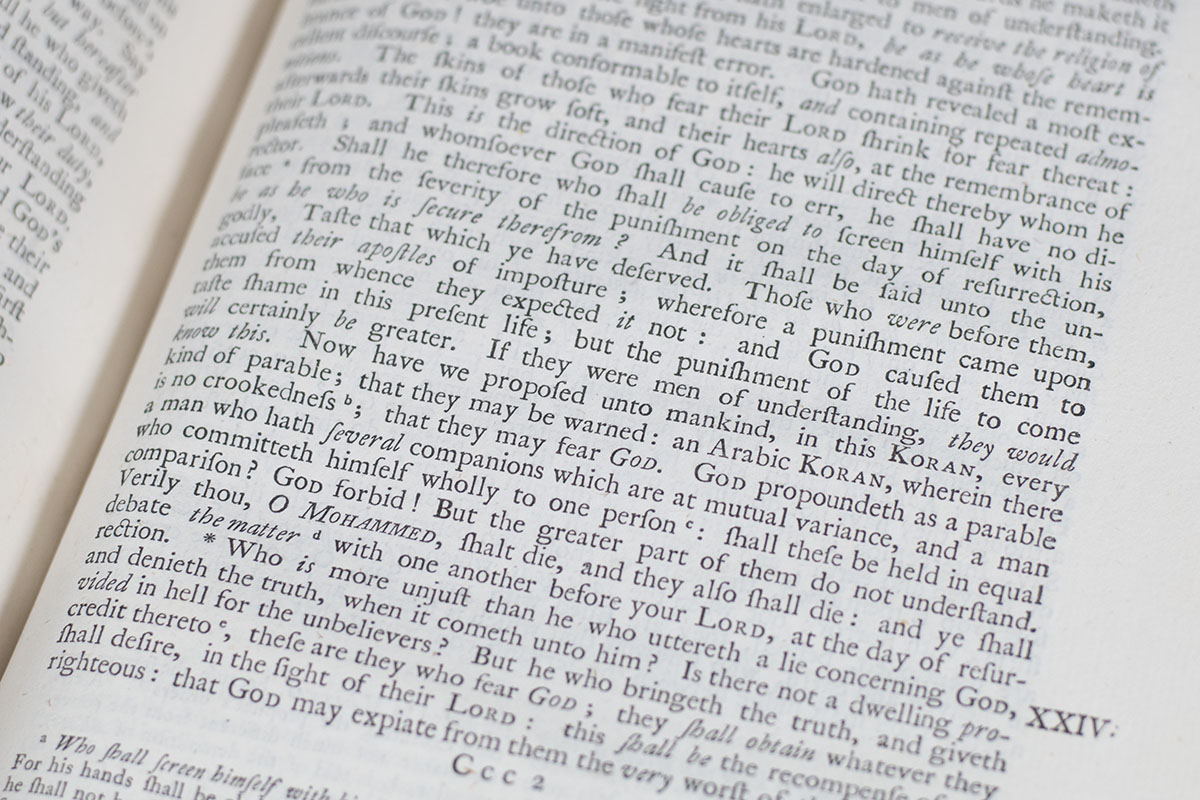 Say
but hereafter
he who giveth
ſtanding, and
of his LORD,
their duty,
underſtanding
LORD.
GOD's
their
and
he maketh it
to men of underſtanding.
right from his LORD, be as he whoſe heart is
unto thoſe whoſe hearts are hardened againſt the remem-
brance of GOD! they are in a manifeſt error. GOD hath revealed a moſt ex-
cellent diſcourſe; a book conformable to itſelf, and containing repeated admo-
nitions. The ſkins of thoſe who fear their LORD ſhrink for fear thereat:
afterwards their ſkins grow ſoft, and their hearts alſo, at the remembrance of
their LORD. This is the direction of GOD: he will direct thereby whom he
pleaſeth; and whomſoever GOD ſhall cauſe to err, he ſhall have no di-
rector. Shall he therefore who ſhall be obliged to ſcreen himſelf with his
face a from the ſeverity of the puniſhment on the day of reſurrection,
be as he who is ſecure therefrom? And it ſhall be ſaid unto the un-
godly, Taſte that which ye have deſerved. Thoſe who were before them,
accuſed their apoſtles of impoſture; wherefore a puniſhment came upon
them from whence they expected it not: and GOD cauſed them to
taſte ſhame in this preſent life; but the puniſhment of the life to come
will certainly be greater. If they were men of underſtanding, they would
know this. Now have we propoſed unto mankind, in this KORAN, every
kind of parable; that they may be warned: an Arabic KORAN, wherein there
is no crookedneſs b; that they may fear GOD. GOD propoundeth as a parable
a man who hath ſeveral companions which are at mutual variance, and a man
who committeth himſelf wholly to one perſon c: ſhall theſe be held in equal
compariſon? GOD forbid! But the greater part of them do not underſtand.
Verily thou, O MOHAMMED, ſhalt die, and they alſo ſhall die: and ye ſhall
debate the matter d with one another before your LORD, at the day of reſur-
rection. * Who is more unjuſt than he who uttereth a lie concerning GOD, XXIV.
and denieth the truth, when it cometh unto him? Is there not a dwelling pro-
vided in hell for the unbelievers? But he who bringeth the truth, and giveth
credit thereto e, theſe are they who fear GOD; they ſhall obtain whatever they
ſhall deſire, in the ſight of their LORD: this ſhall be the recompenſe
righteous: that GOD may expiate from them the very worſt
Ccc 2
a Who ſhall ſcreen himſelf with
For his hands ſhall be
he ſhall not